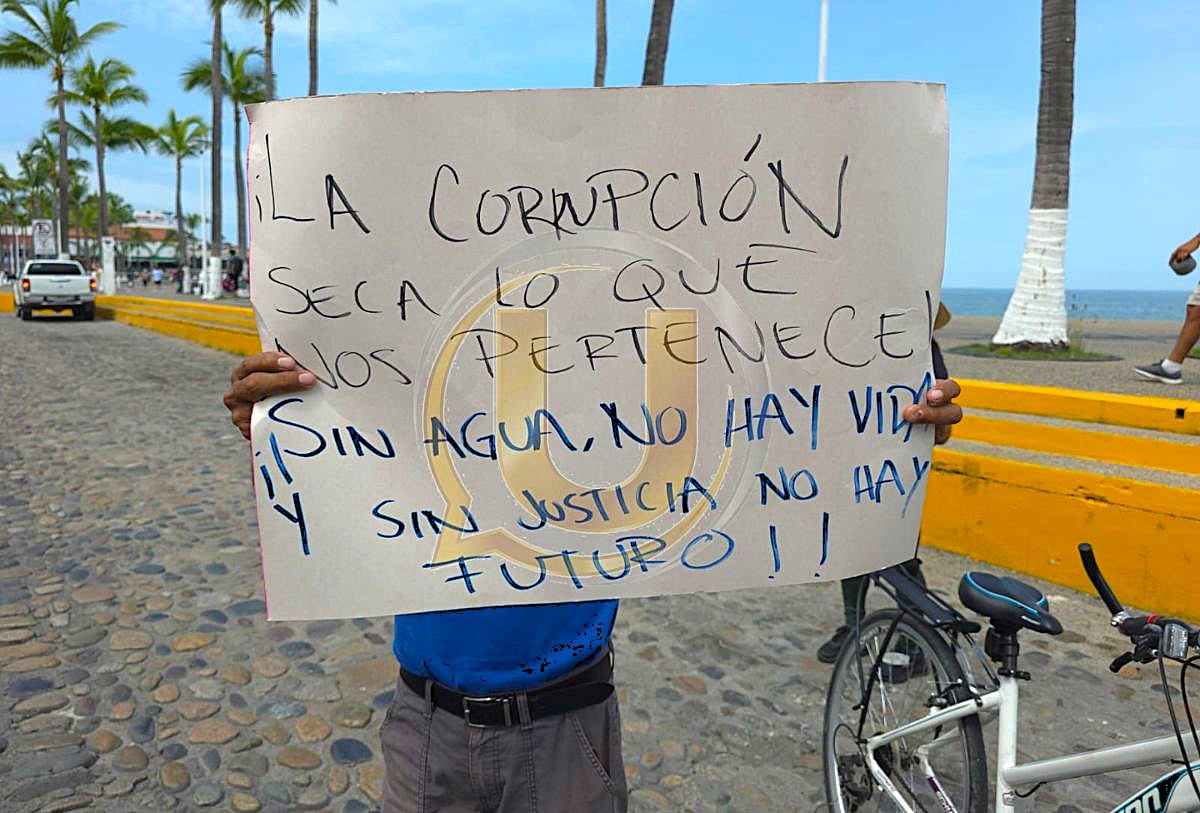 ¡LA CORRUPCIÓN
SECA LO QUE
NOS PERTENECE!
¡¡SIN AGUA, NO HAY VIDA
Y SIN JUSTICIA NO HAY
FUTURO!!
U